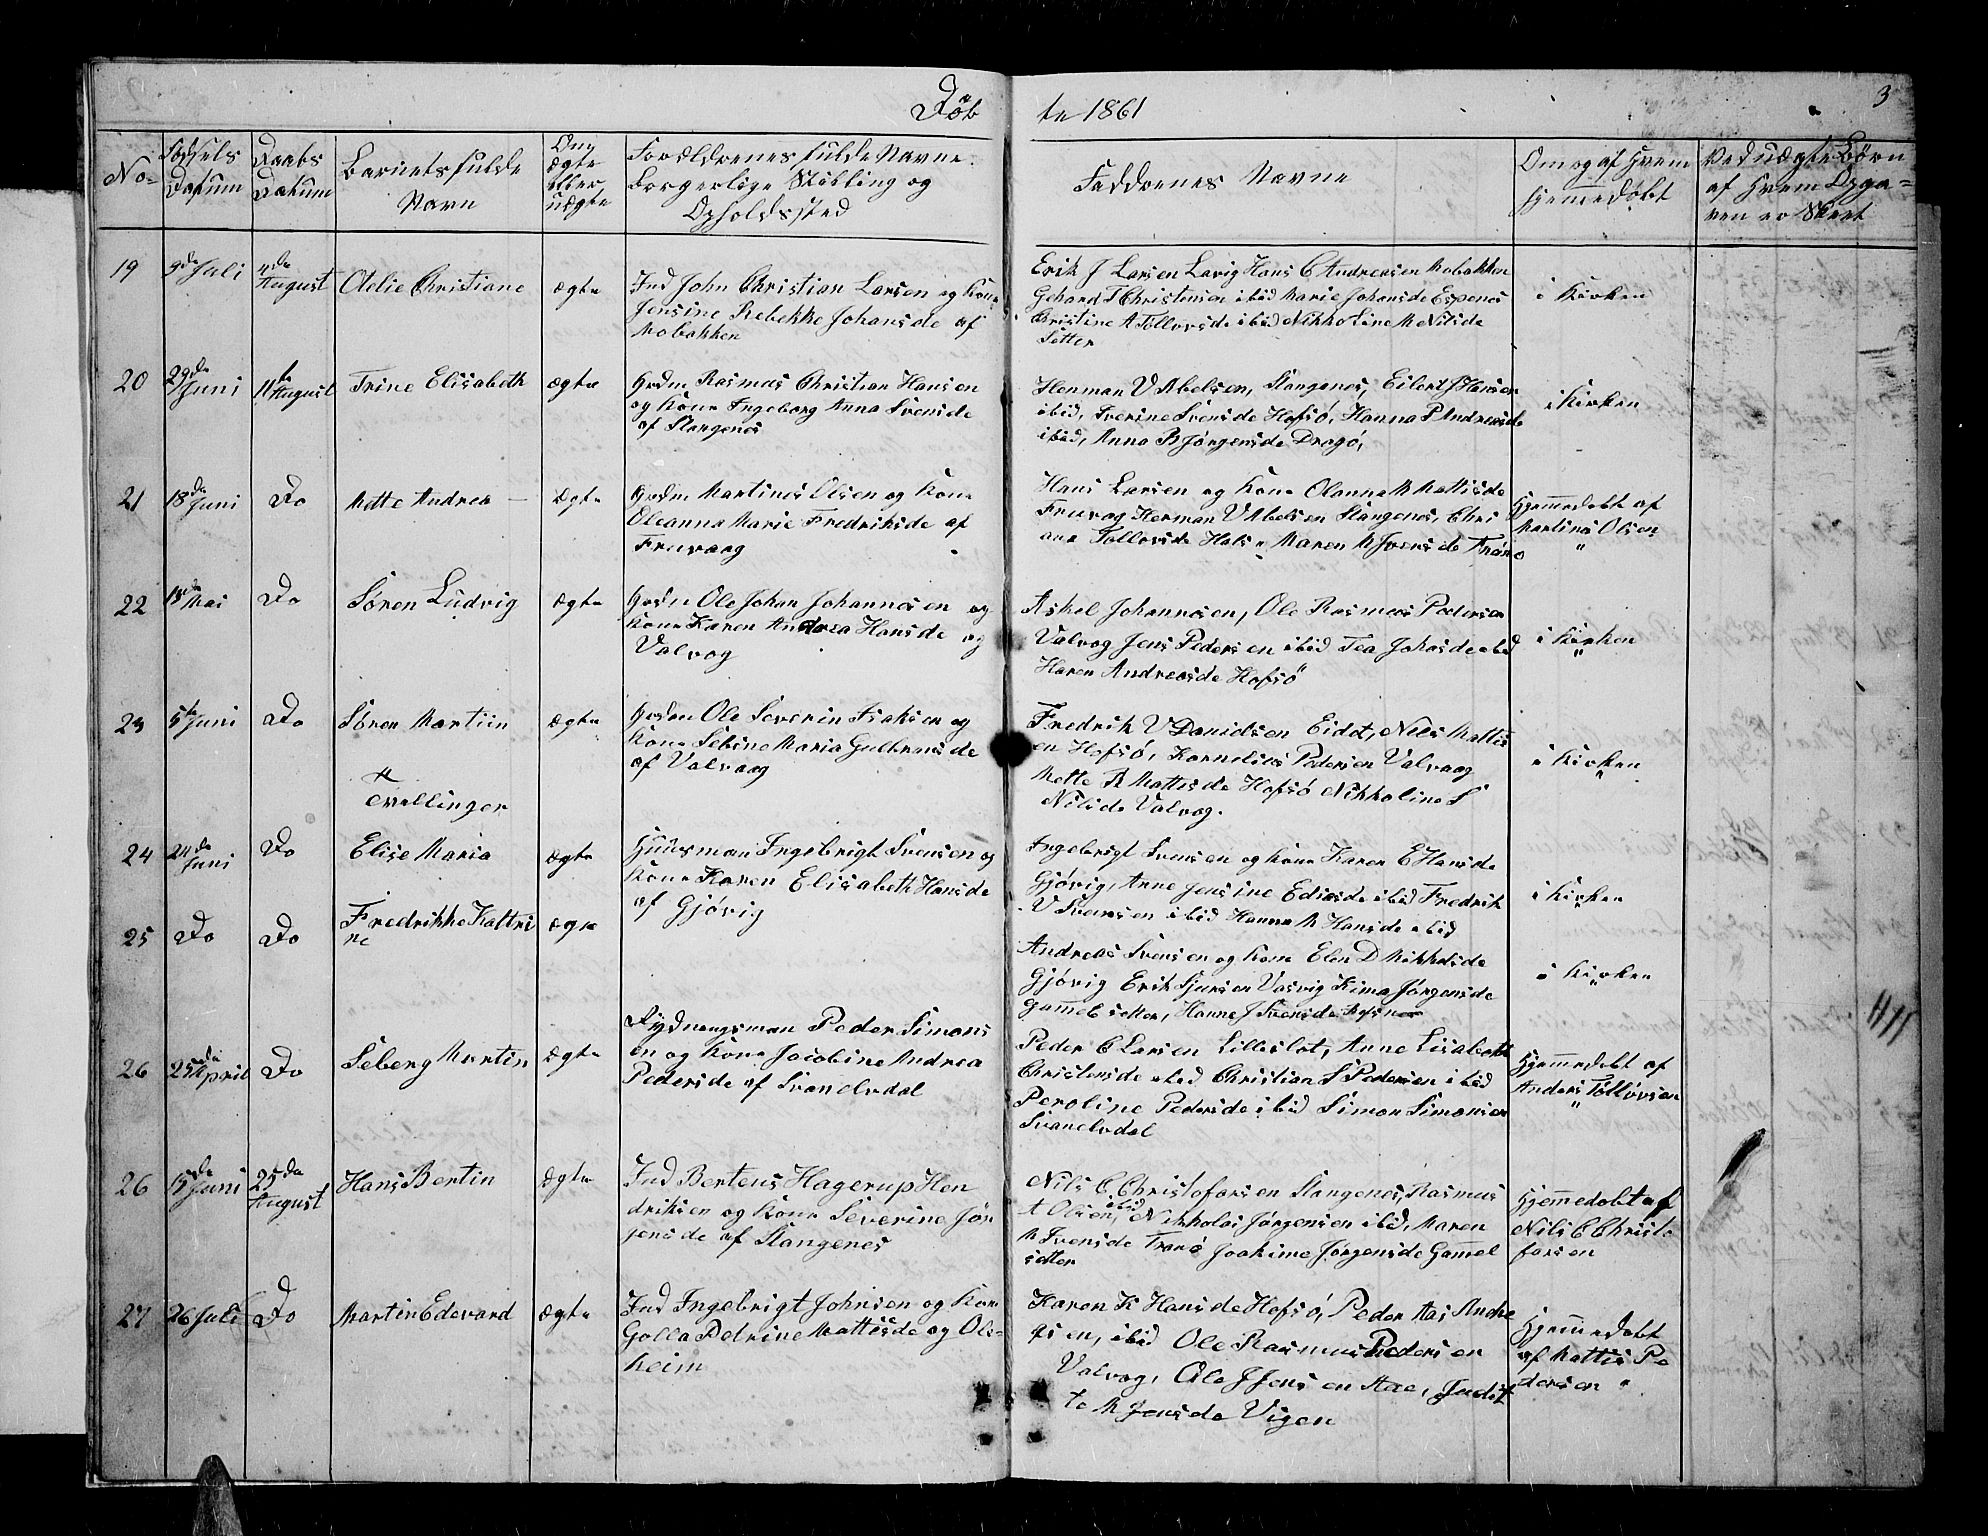 Döb
te 1861
3
No
Fødsels Datum
Daabs Datum
Barnets fulde Navn
Om ægte eller uægte
Forældrenes fulde Navne. Borgerlige Stilling og Opholdssted
Faddrenes Navne
Om og af Hvem Hjemmedøbt
Ved uægte Børn af Hvem Opgaven er Skeet
19
9de Juli
4de August
Otelie Christiane
ægte
Ind John Christian Larsen og Kone
Jensine Rebekke Johansde af
Mobakken
Erik J Larsen Lavig Hans C Andreasen Mobakken
Gehard T Christensen ibid Marie Johansde Espenes
Christine A Tollovsde ibid Nikholine M Nilsde
Sætter
i Kirken
20
29de Juni
11te August
Trine Elisabeth
ægte
Grdm Rasmus Christian Hansen
og Kone Ingeborg Anna Svensde
af Stangenes
Herman U Abelsen, Stangenes, Eilert J Hansen
ibid, Sverine Svensde Hofsö, Hanna P Andreasde
ibid, Anna B Jörgensde Dragö,
i Kirken
21
18de Juni
Do
Mette Andrea
ægte
Grdm Martines Olsen og Kone
Oleanna Marie Fredriksde af
Fruvaag
Hans Larsen og Kone Olanna M Mattisde
Fruvog Herman U Abelsen Stangenes, Chri
ane Tollovsde Hals Maren M Svensde Tranö
Hjemmedøbt af
Martines Olsen
22
18de Mai
Do
Sören Ludvig
ægte
Grdm Ole Johan Johannesen og
Kone Karen Andrea Hansde og
Valvog
Askel Johannesen, Ole Rasmus Pedersen
Valvog Jens Pedersen ibid Tea Johasde ibid
Haren Andreasde Hofsö
i Kirken
23
5te Juni
Do
Sören Martiin
ægte
Grdm Ole Severin Isaksen og
Kone Sebine Maria Gulbransde
af Valvaag
Fredrik V Danidsen Eidet, Nils Mattis
en Hofsö, Kornelius Pedersen Valvaag
Mette B Mattisde Hofsö Nikkoline S
Nilsde Valvog.
i Kirken
Tvillinger
24
24de Juni
Do
Elise Maria
ægte
Huusman Ingebrigt Svensen og
Kone Karen Elisabeth Hansde
af Gjövig
Ingebrigt Svensen og Kone Karen E Hansde
Gjövig, Anne Jensine Ediasde ibid Fredrik
V Svensen ibid Hanna M Hansde ibid
i Kirken
25
Do
Do
Fredrikke Kattri
ne
ægte
Andreas Svensen og Kone Elen D Mikkelsde
Gjövig Erik Sjursen Vasvig Kima Jörgensde
Gammelsetter, Hanne J Svensde
i Kirken
26
25de April
Do
Seberg Martin
ægte
Rydningsman Peder Simons
en og Kone Jacobine Andrea
Pedersde af Svanelvdal
Peder C Larsen Lilleslet, Anne Lisabeth
Christensde ibid Christian S Pedersen ibid
Peroline Pedersde ibid Simon Simonsen
Svanelvdal
Hjemmedøbt af
Anders Tollovsen
26
15de Juni
25de August
Hans Bertin
ægte
Ind Berteus Hagerup Hen
driksen og Kone Severine Jör
gensde af Stangenes
Nils C Christofersen Stangenes, Rasmus
A Olsen, ibid Nikholai Jörgensen ibid, Maren
M Svensde Tranö Joakime Jörgensde Gammel
sætter
Hjemmedøbt af
Nils C Christo
fersen
27
26 Juli
Do
Martin Edevard
ægte
Ind Ingebrigt Johnsen og Kone
Golla Petrine Mattisde og Ols-
heim
Karen K Hansde Hofsö, Peder Aas Andre
asen, ibid Ole Rasmus Pedersen
Valvog, Ole J Jensen Aae, Judit
te M Jensde Vigen
Hjemmedøbt
af Mattis Pe
dersen